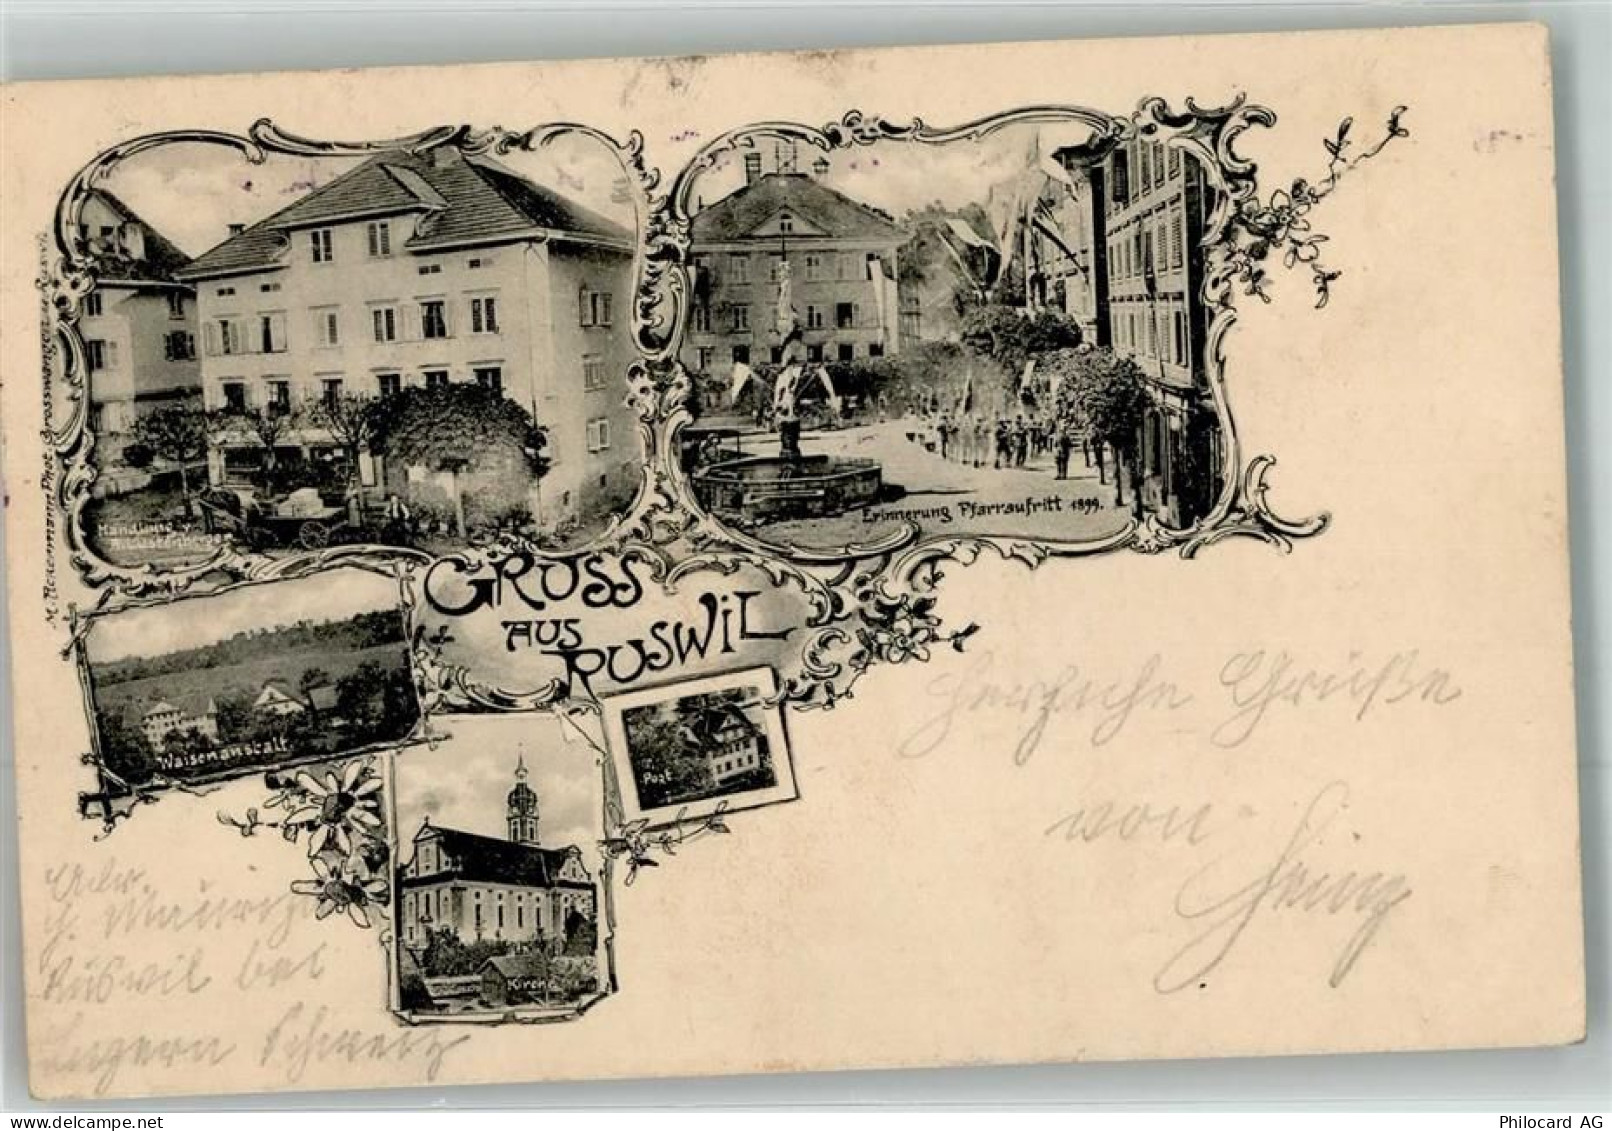 Handlung z.
Erinnerung Pfarraufritt 1899.
GRUSS
AUS
RUSWIL
Waisenanstalt
Post
Kirche
Herzliche Grüße
von
Heinz
Adr.
Ruswil bei
Luzern Schweiz
Philocard AG